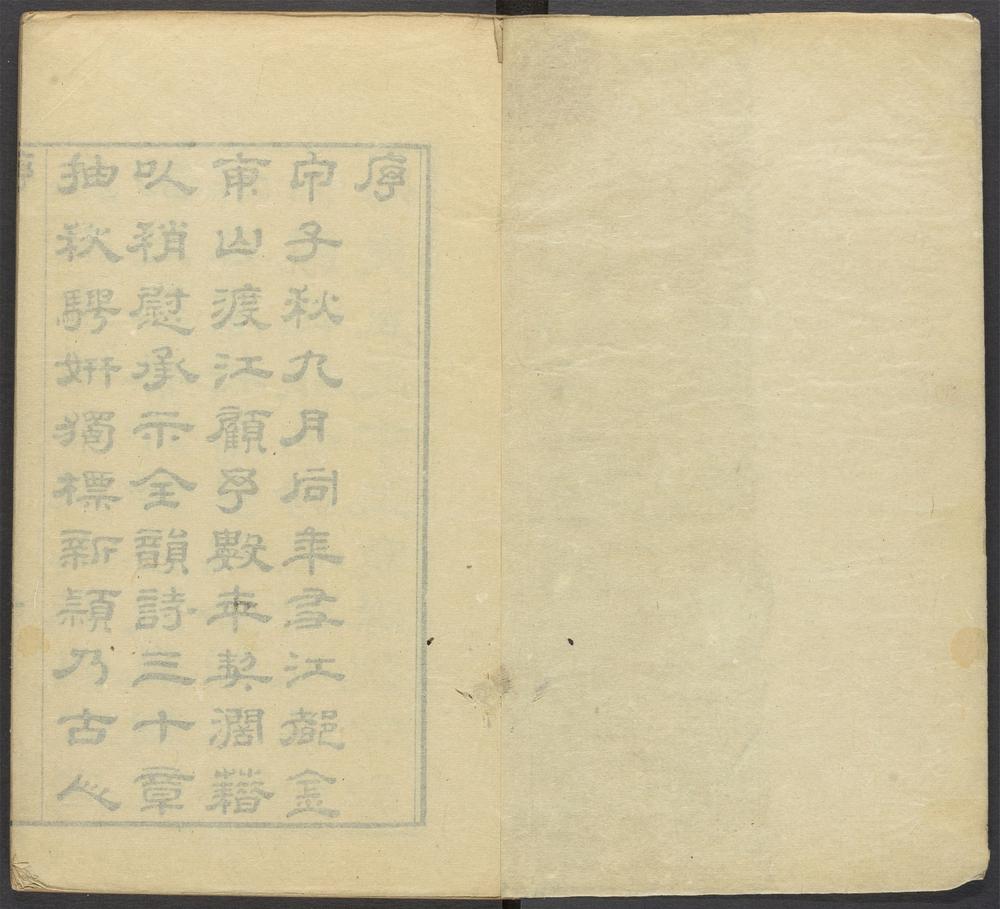 序
丙子秋九月同年友江都金
東山渡江顧予數年契濶藉
以稍慰承示全韻詩三十章
抽秋騁妍獨標新穎乃古人
序